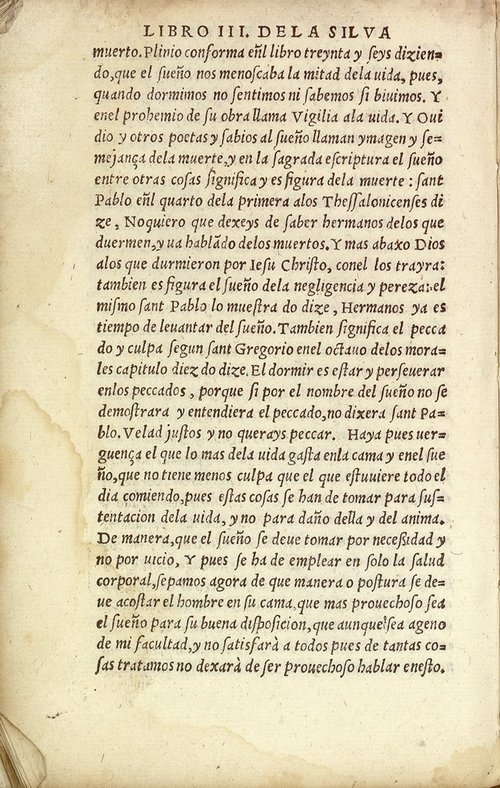 LIBRO III. DELA SILVA
muerto. Plinio conforma eñl libro treynta y seys dizien=
do, que el sueño nos menoscaba la mitad dela uida, pues,
quando dormimos no sentimos ni sabemos si biuimos. Y
enel prohemio de su obra llama Vigilia ala uida. Y Oui
dio y otros poetas y sabios al sueño llaman ymagen y se=
mejança dela muerte, y en la sagrada escriptura el sueño
entre otras cosas significa y es figura dela muerte: sant
Pablo eñl quarto dela primera alos Thessalonicenses di
ze, No quiero que dexeys de saber hermanos delos que
duermen, y ua hablãdo delos muertos. Y mas abaxo Dios
alos que durmieron por Iesu Christo, conel los trayra:
tambien es figura el sueño dela negligencia y pereza: el
mismo sant Pablo lo muestra do dize, Hermanos ya es
tiempo de leuantar del sueño. Tambien significa el pecca
do y culpa segun sant Gregorio enel octauo delos mora=
les capitulo diez do dize. El dormir es estar y perseuerar
enlos peccados, porque si por el nombre del sueño no se
demostrara y entendiera el peccado, no dixera sant Pa=
blo. Velad justos y no querays peccar. Haya pues uer=
guença el que lo mas dela uida gasta enla cama y enel sue
ño, que no tiene menos culpa que el que estuuiere todo el
dia comiendo, pues estas cosas se han de tomar para sus=
tentacion dela uida, y no para daño della y del anima.
De manera, que el sueño se deue tomar por neceßidad y
no por uicio, Y pues se ha de emplear en solo la salud
corporal, sepamos agora de que manera o postura se de=
ue acostar el hombre en su cama, que mas prouechoso sea
el sueño para su buena disposicion, que aunque sea ageno
de mi facultad, y no satisfarà a todos pues de tantas co=
sas tratamos no dexarà de ser prouechoso hablar enesto.